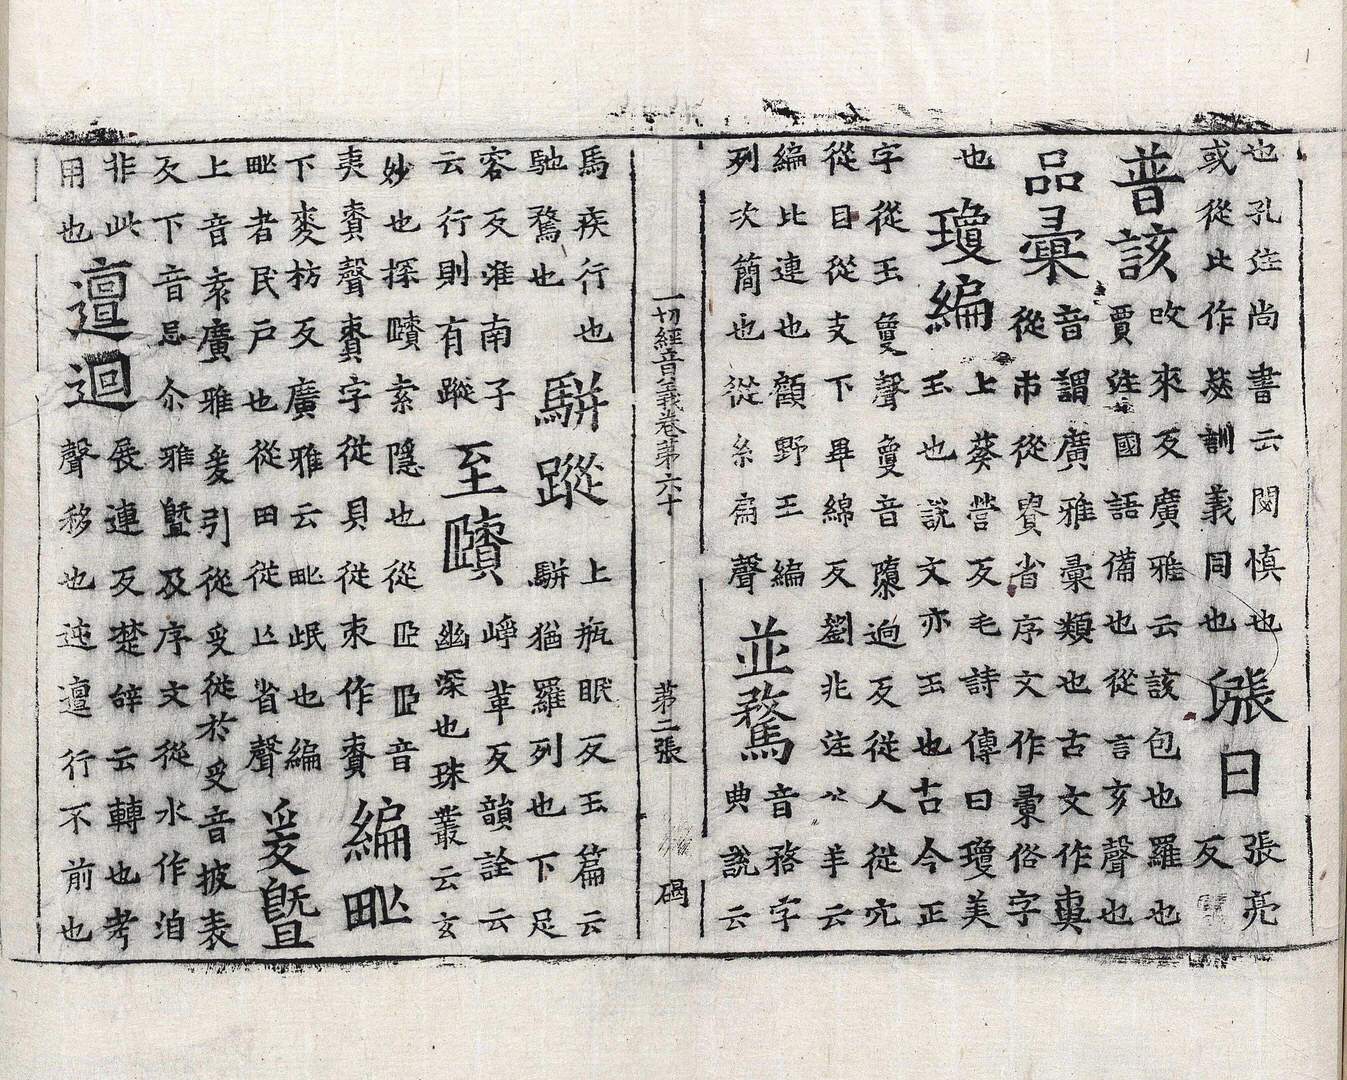 也孔注尚書云閔慎也
或從比作毖訓義同也
曰
張亮
反
普該
改來反廣雅云該包也羅也
賈注國語備也從言亥聲也
品彙
音謂廣雅彙類也古文作
從巿從省序文作彙俗字
也
瓊編
上葵營反毛詩傳曰瓊美
玉也說文亦玉也古今正
字從玉敻聲敻音隳逈反從人從穴
從目從支下畢綿反劉兆注公羊云
編比連也顧野王編
列次簡也從糸扁聲
並騖
音務字
典說云
一切經音義卷第六十 第二張 碣
馬疾行也
馳騖也
駢蹤
上瓶眠反玉篇云
駢猶羅列也下足
容反淮南子
云行則有蹤
至賾
崢革反韻詮云
幽深也珠叢云玄
妙也探賾索隱也從𦣞𦣞音
夷賚聲賚字從貝從朿作賚
編甿
下麥枋反廣雅云甿岷也編
甿者民戶也從田從亡省聲
爰曁
上音袁廣雅爰引從受從於受音披表
反下音忌尒雅曁及序文從水作洎
非此
用也
邅迴
展連反楚辝云轉也考
聲移也迍邅行不前也